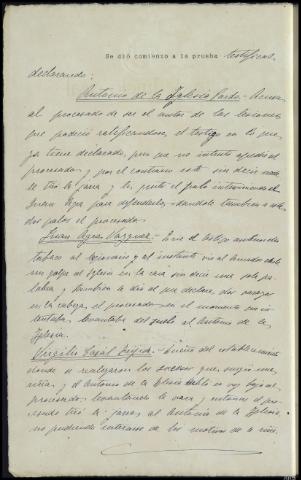 Se dió comienzo a la prueba testifical
declarando:
Antonio de la Iglesia Pardo.- Acusa
al procesado de ser el autor de las lesiones
que padeció ratificandose, el testigo en lo que
ya tiene declarado, pero que no intentó agredir al
procesado y por el contrario este sin decir nada
le tiró la jarra y le
Juan para defenderlo- dandole tambien a este
dos palos el procesado.
Juan Vazquez.- Que el testigo
tabaco al legionario y al instante vió al
un golpe al Iglesia en la cara sin decir una sola pa-
labra y tambien le dió al que declara dos
en la cabeza el procesado en el momento que in-
tentaba, levantaba del suelo al Antonio de la
Iglesia.
Virgilio Casal .- Dueño del establecimiento
donde se realizaron los sucesos que surgió una
riña, y el Antonio de la Iglesia habló en voz baja al
procesado; levantandose la y entonces el pro-
cesado tiró la jarra al Antonio de la Iglesia,
no pudiendo enterarse de los motivos de la riña.